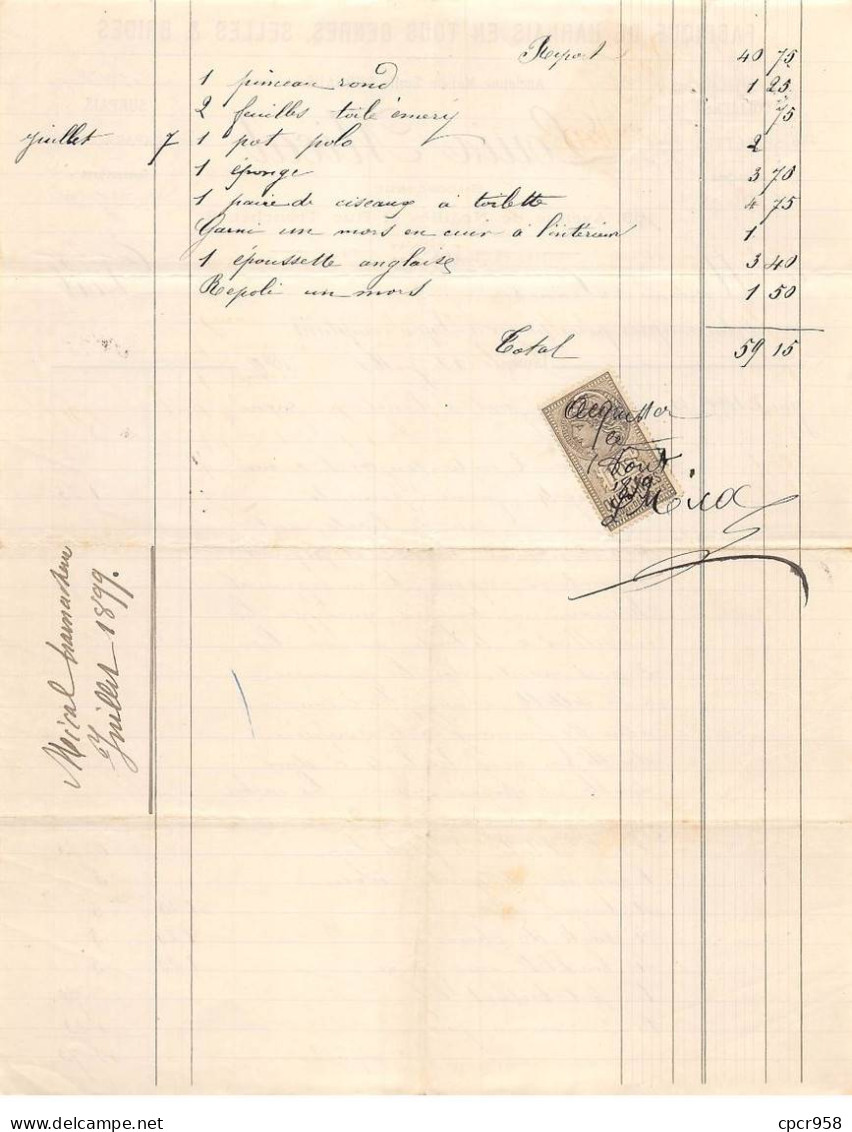 Report 40 75
1 pinceau rond 1 25
2 feuilles toile émeri 75
juillet 7 1 pot polo 2
1 éponge 3 70
1 paire de ciseaux à toilette 4 75
Garni un mors en cuir à l'intérieur 1
1 époussette anglaise 3 40
Repoli un mors 1 50
Total 59 15
1 Aout
1899
Juillet 1899.
cpcr958